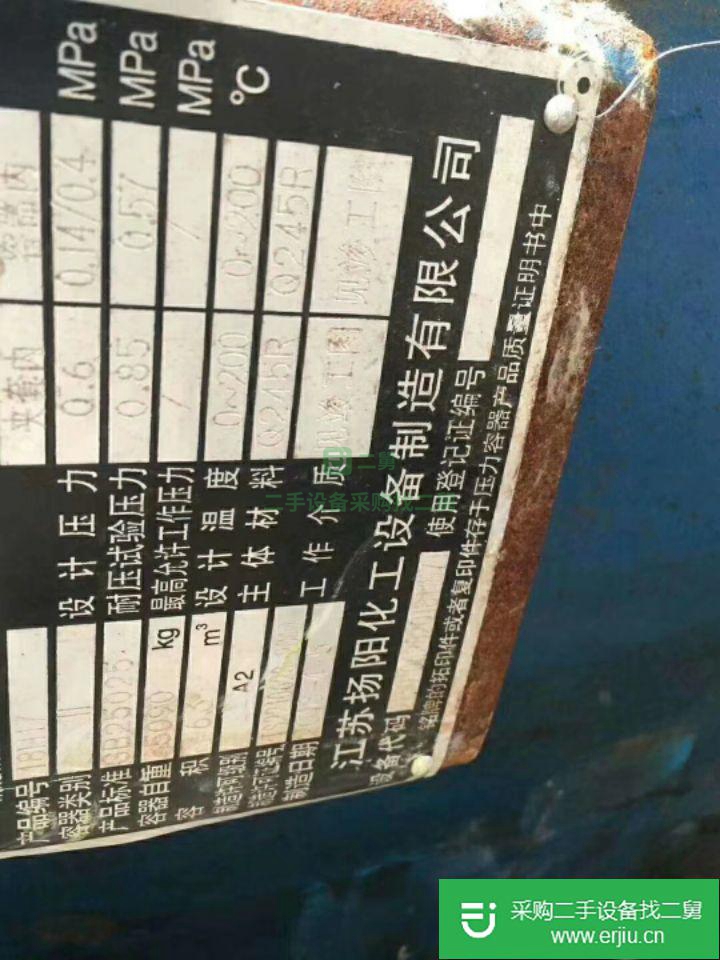 容器内 夹套内
设计压力 0.14/0.4 0.6 MPa
耐压试验压力 0.57 0.85 MPa
最高允许工作压力 / / MPa
设计温度 0~200 0~200 ℃
主体材料 Q245R Q245R
工作介质 见竣工图 见竣工图
产品编号
容器类别 II
产品标准
容器自重 kg
容积 6.3 m³
制造许可级别 A2
制造许可证编号
制造日期
江苏扬阳化工设备制造有限公司
设备代码 使用登记证编号
铭牌的拓印件或者复印件存于压力容器产品质量证明书中
二舅
二手设备采购找二舅
采购二手设备找二舅
www.erjiu.cn